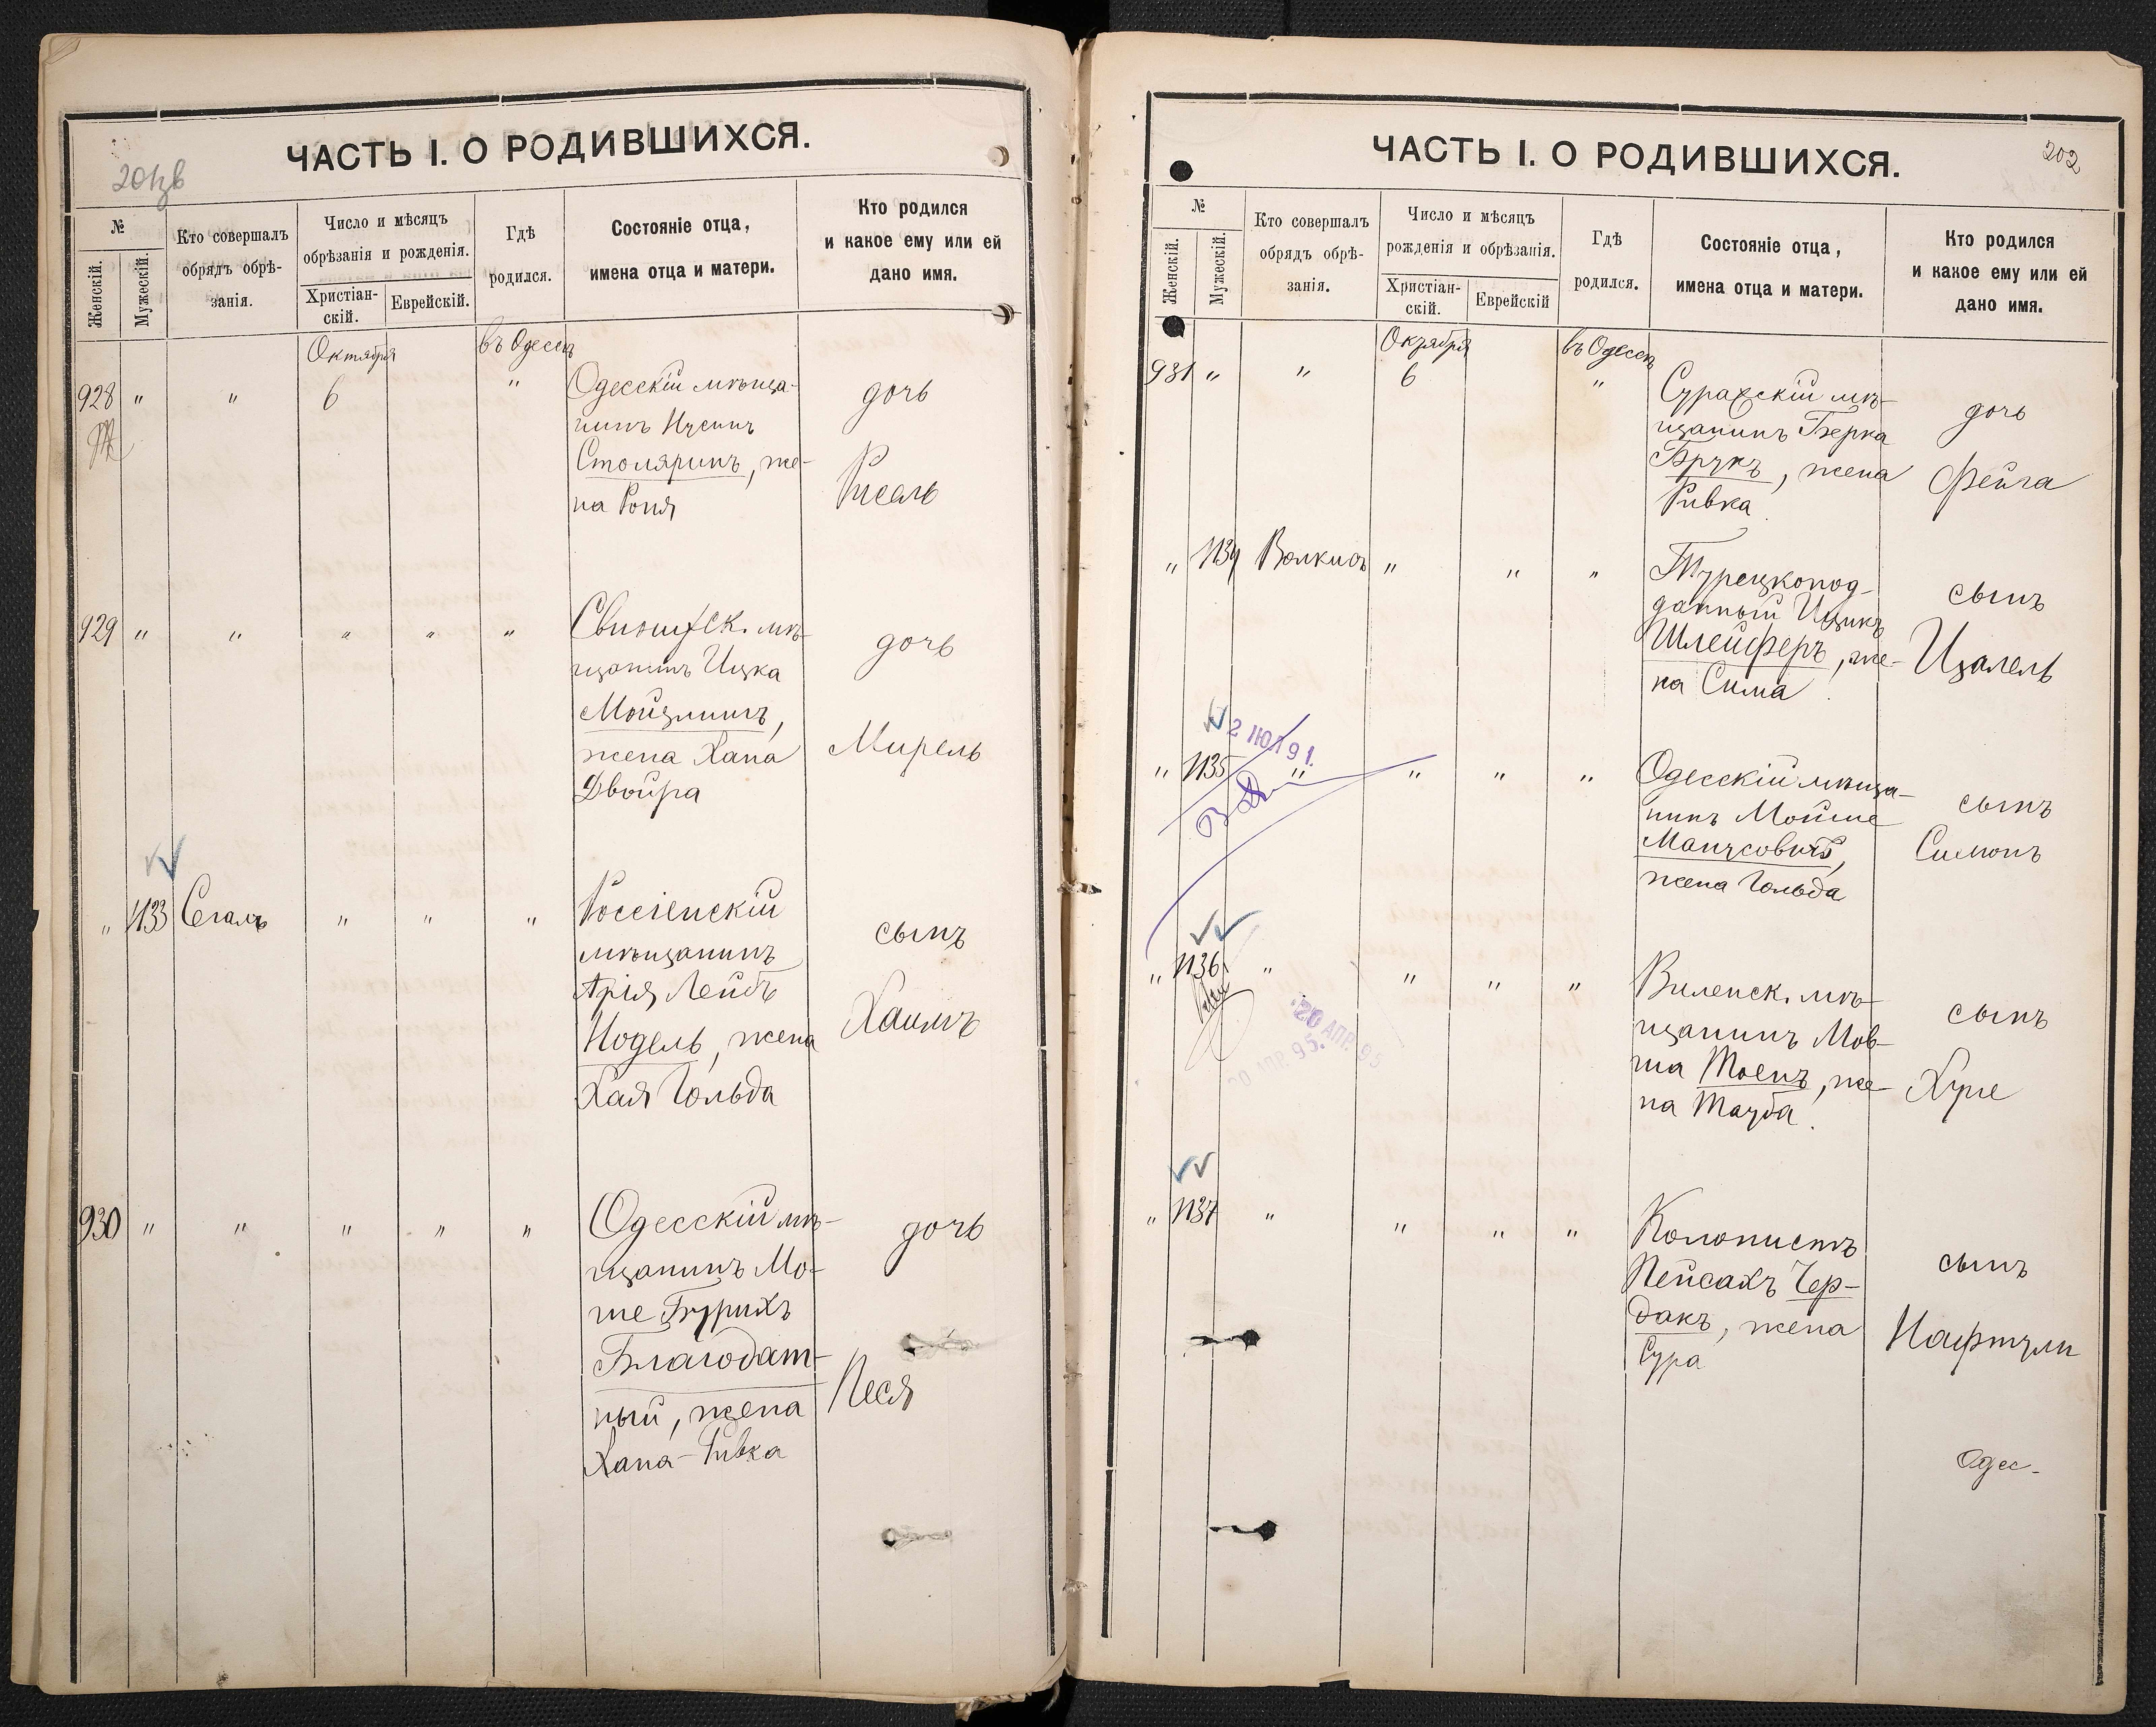 ЧАСТЬ I. О РОДИВШИХСЯ.
№
Женскій.
Мужескій.
Кто совершалъ
обрядъ обрѣ-
занія.
Число и мѣсяцъ
обрѣзанія и рожденія.
Христіан-
скій.
Еврейскій.
Гдѣ
родился.
Состояніе отца,
имена отца и матери.
Кто родился
и какое ему или ей
дано имя.
Октября
въ Одессѣ
928 " " 6 " Одесскій мѣща-
нинъ Нусинъ
Столяринъ, же-
на Роня
дочь
Рисель
929 " " " " "
мѣ-
щанинъ Ицка
жена Хана
Двойра
дочь
Мирель
" 1133 Сегалъ " " " Россіенскій
мѣщанинъ
Арія Лейбъ
Нодель, жена
Хая Гольда
сынъ
Хаимъ
930 " " " " " Одесскій мѣ-
щанинъ Мо-
ше Бурихъ
Благодат-
ный, жена
Хана-Ривка
дочь
Песя
ЧАСТЬ I. О РОДИВШИХСЯ.
202
№
Женскій.
Мужескій.
Кто совершалъ
обрядъ обрѣ-
занія.
Число и мѣсяцъ
рожденія и обрѣзанія.
Христіан-
скій.
Еврейскій
Гдѣ
родился.
Состояніе отца,
имена отца и матери.
Кто родился
и какое ему или ей
дано имя.
Октября
въ Одессѣ
931 " " 6 " Суражскій мѣ-
щанинъ Берка
Брукъ, жена
Ривка
дочь
Фейга
" 1134 " " " Турецкопод-
данный Ицикъ
Шлейферъ, же-
на Сима
сынъ
Ицалель
2 ІЮЛ 91.
" 1135 " " " " Одесскій мѣща-
нинъ Мойше
Манусовичъ,
жена Гольда
сынъ
Симонъ
" 1136 " " " " Виленск. мѣ-
щанинъ Мов-
ша Тоенъ, же-
на Тауба
сынъ
Хуне
20 АПР. 95
" 1137 " " " " Колонистъ
Пейсахъ Чер-
дакъ, жена
Сура
сынъ
Нафтули
Одес-